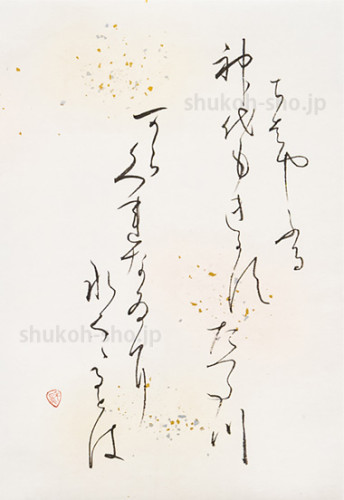 ちはやふる
神代もきかすたつた川
からくれなゐに
水くゝるとは
shukoh-sho.jp
shukoh-sho.jp